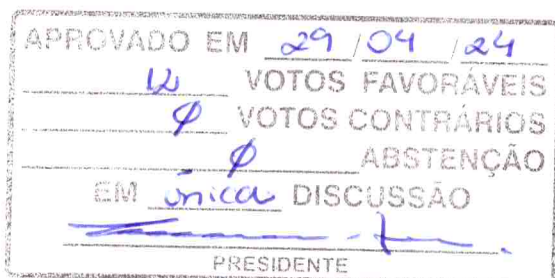 APROVADO EM 29/04/24
12 VOTOS FAVORÁVEIS
Ø VOTOS CONTRÁRIOS
Ø ABSTENÇÃO
EM única DISCUSSÃO
PRESIDENTE